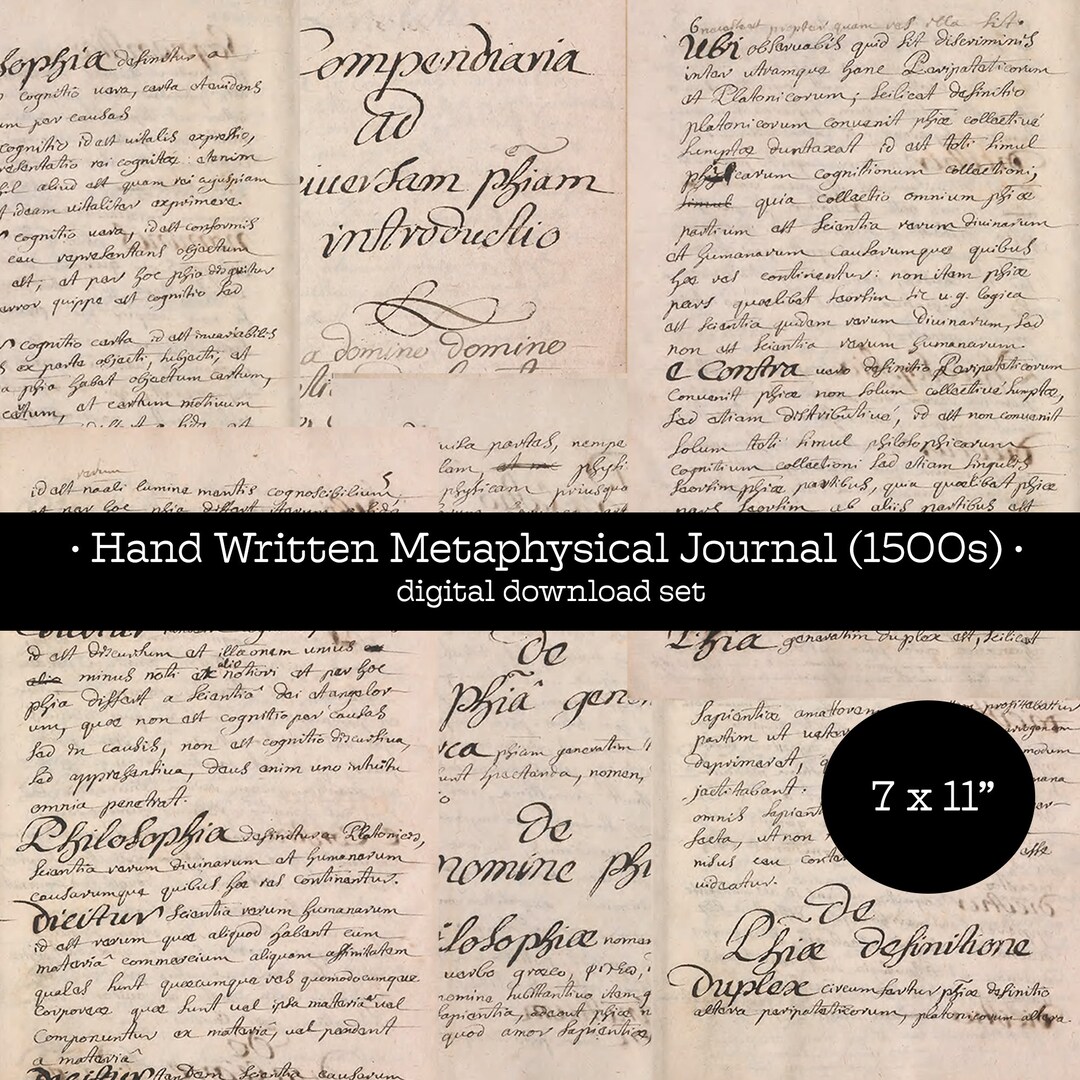 · Hand Written Metaphysical Journal (1500s) ·
digital download set
7 x 11”
sophia definitur a
cognitio vera, certa et evidens
um per causas
cognitio id est vitalis expressio,
resentatio rei cognitæ: etenim
aliud est quam rei cujuspiam
t ideam vitaliter exprimere.
cognitio vera, id est conformis
ceu repræsentans objectum
est, et per hoc phia
error quippe est cognitio sed
cognitio certa id est invariabilis
ex parte objecti, subjecti, et
a phia habet objectum certum,
certum, et certum motivum
Compendiaria
ad
universam phiam
introductio
a domine domine
propter quam res illa sit.
Ubi observabis quid sit discriminis
inter utramque hanc Peripateticorum
et Platonicorum; scilicet definitio
platonicorum convenit phiæ collectivè
sumptæ duntaxat id est toti simul
cognitionum collectioni;
simul quia collectio omnium phiæ
partium est Scientia rerum divinarum
et humanarum causarumque quibus
hæ res continentur: non item phiæ
pars quælibet seorsim sic u.g. logica
est scientia quidem rerum divinarum, sed
non est Scientia rerum humanarum.
e Contra vero definitio Peripateticorum
Convenit phiæ non solum collectivè sumptæ,
sed etiam distributivè, id est non convenit
solum toti simul philosophicarum
cognitium collectioni sed etiam singulis
seorsim phiæ partibus, quia quælibet phiæ
pars seorsim ab aliis partibus est
rerum
5
id est naali lumine mentis cognoscibilium,
et per hoc phia differt
visa paritas, nempe
lam, physi
physicam priusquo
id est discursum et illaonem unius
alio
minus noti notiori et per hoc
phia differt a scientiâ dei et angelor
um, quæ non est cognitio per causas
sed in causis, non est cognitio discursiva,
sed apprehensiva, deus enim uno intuitu
omnia penetrat.
Philosophia definitur a Platonicis,
scientia rerum divinarum et humanarum
causarumque quibus hæ res continentur.
Dicitur Scientia rerum humanarum
id est rerum quæ aliquod habent cum
materiâ commercium aliquam affinitatem
quales sunt quæcumque res quomodocumque
corporeæ quæ sunt vel ipsa materia vel
Componuntur ex materiâ, vel pendent
a materiâ
Dicitur tandem scientia causarum
de
phiâ gen
rca phiam generatim
unt spectanda, nomen,
de
nomine phi
ilosophiæ nomen
verbo græco,
nomine substantivo item g
sapientia, adeout phiæ n
quod amor sapientiæ,
Phia generatim duplex est, scilicet
Sapientiæ amatorem profitebatur
partim ut
deprimeret,
jactitabant.
omnis sapient
facta, ut non
nisus ceu esse
videatur.
de
Phiæ definitione
Duplex circumfertur phiæ definitio
altera peripateticorum, platonicorum altera.